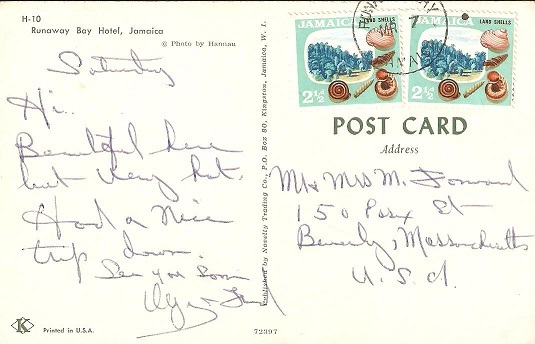 H-10
Runaway Bay Hotel, Jamaica
© Photo by Hannau
Saturday
Hi..
Beautiful here
but very hot.
Had a nice
trip down.
See you soon
Printed in U.S.A.
K
72397
Published by Novelty Trading Co., P.O. Box 80, Kingston, Jamaica, W. I.
JAMAICA LAND SHELLS
2½
JAMAICA LAND SHELLS
2½
7
POST CARD
Address
Mr & Mrs M.
150 St
Beverly, Massachusetts
U.S.A.